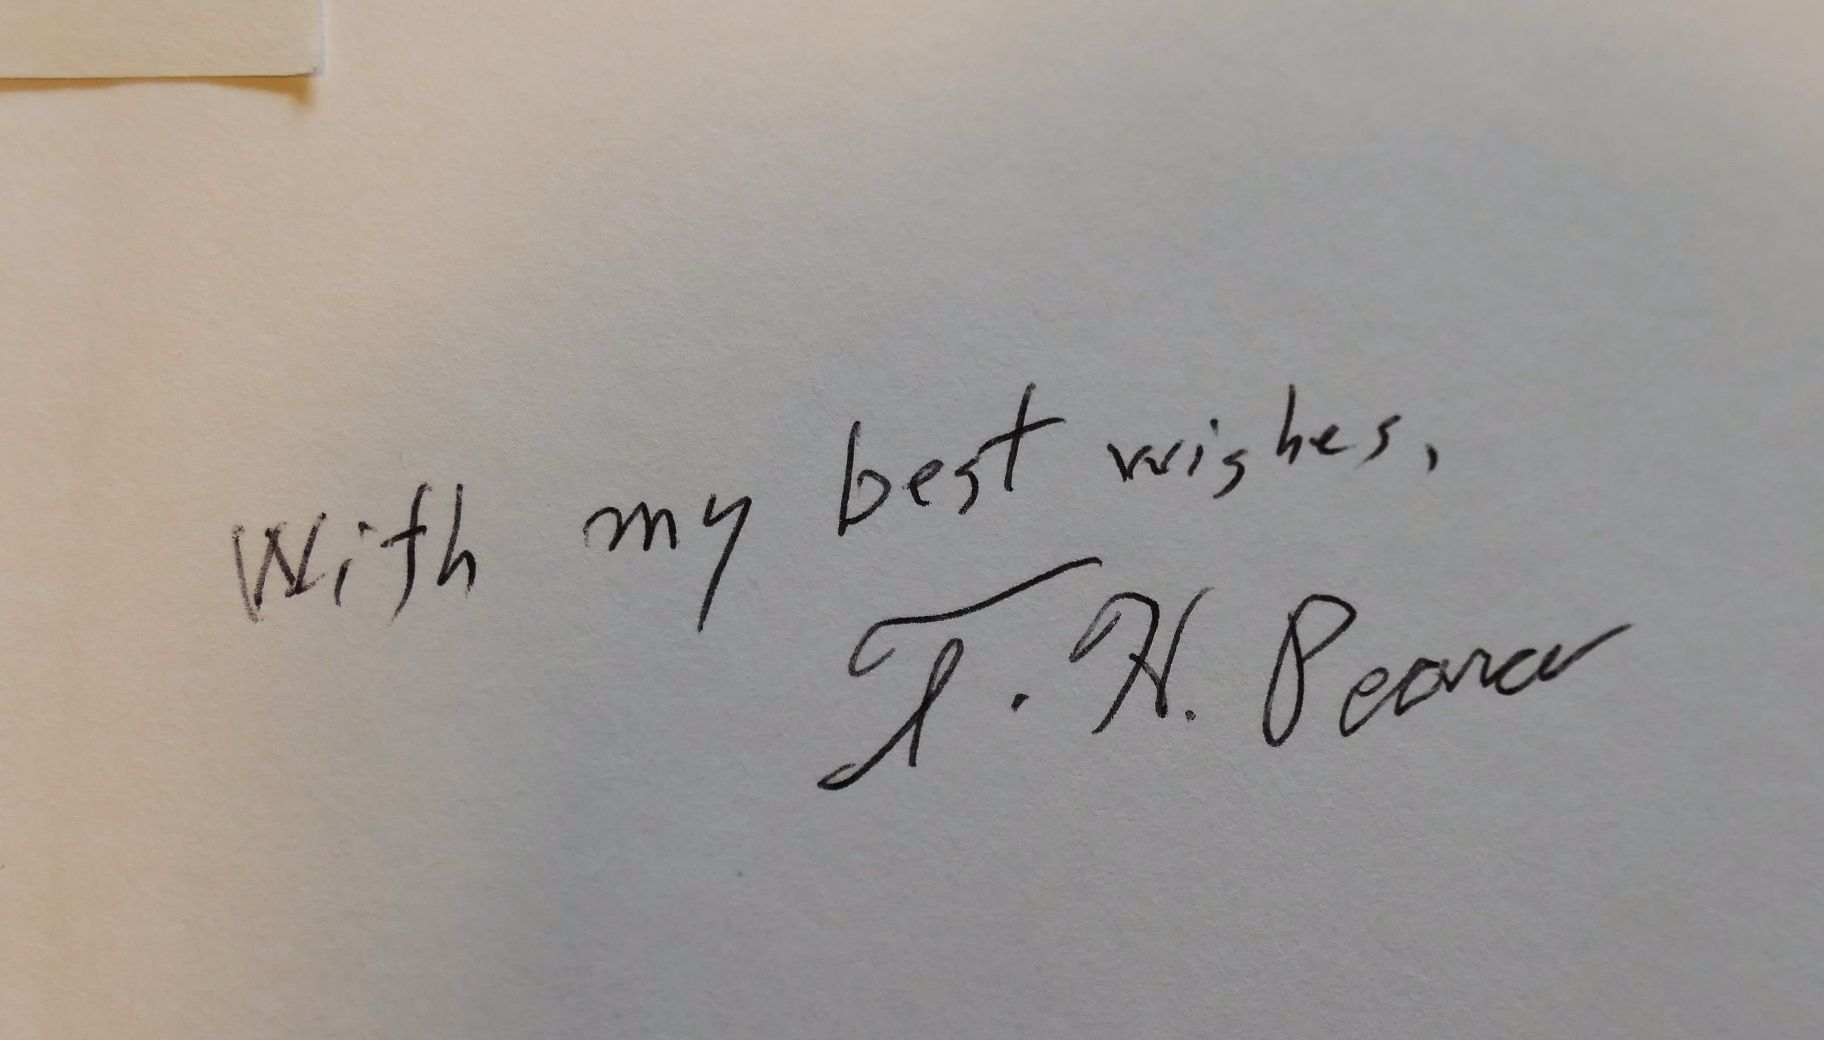 With my best wishes,
T. H. Pearce